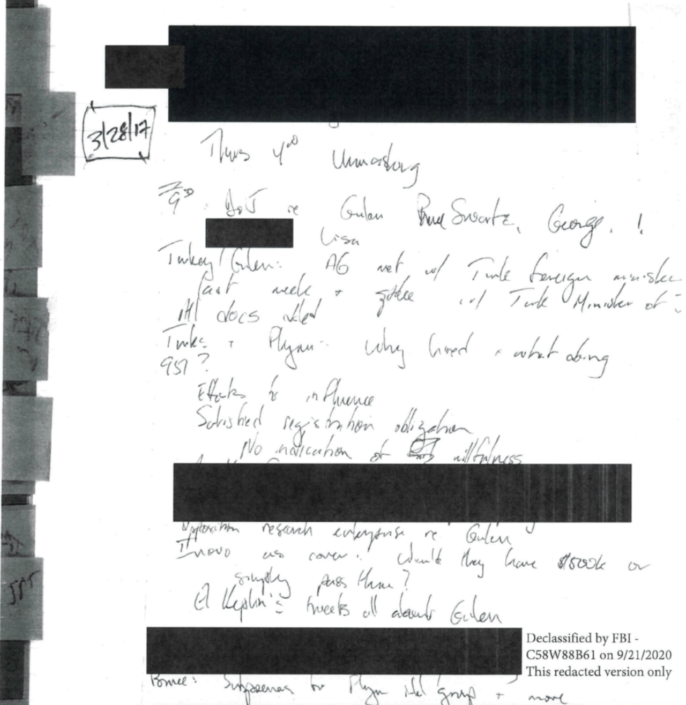 3/28/17
Thurs 4:00 Unmasking
9:30 DoJ re Gulen Bruce Swartz, George, !
Lisa
Turkey/Gulen: AG met w/ Turk foreign minister
last week + spoke w/ Turk Minister of
All docs
Turks + Flynn: why hired + what doing
951?
Efforts to influence
Satisfied registration obligation
No indication of willfulness
Opposition research enterprise re Gulen
Inovo as cover: Would they have $500k or
simply pass thru?
tweets all about Gulen
Declassified by FBI -
C58W88B61 on 9/21/2020
This redacted version only
Subpoenas for Flynn Intel group + more